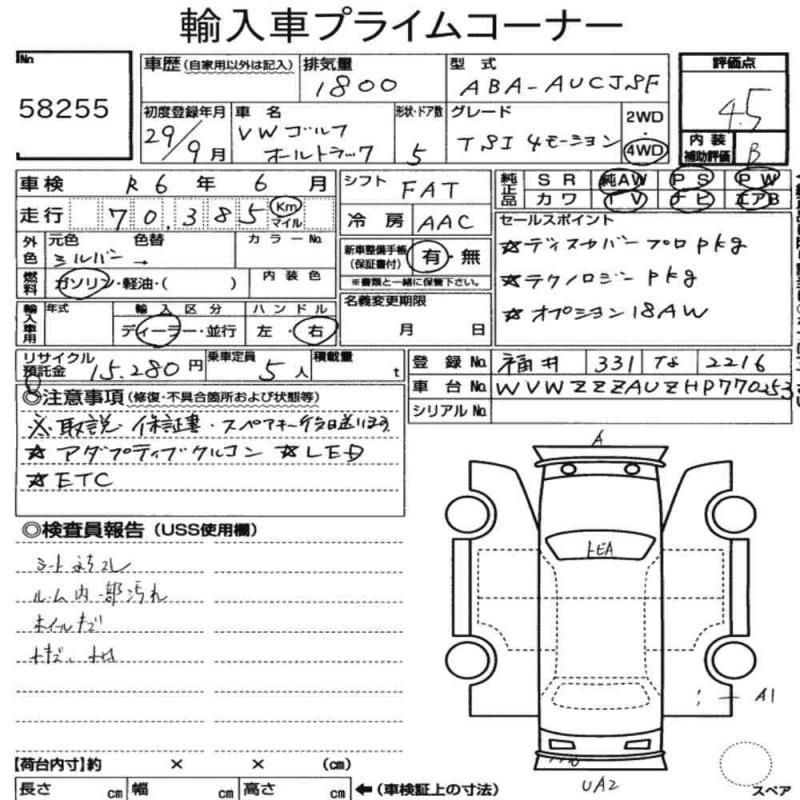 輸入車プライムコーナー
No.
58255
車歴(自家用以外は記入)
排気量
1800
型式
ABA-AUCJSF
評価点
4.5
初度登録年月
29/9月
車名
VWゴルフ
オールトラック
形状・ドア数
5
グレード
TSI 4モーション
2WD
・
4WD
内装
補助評価
B
車検 R6年6月
走行 70,385 Km
マイル
シフト FAT
冷房 AAC
純正品
SR 純AW PS PW
カワ TV ナビ エアB
外色
元色 色替 カラーNo.
シルバー →
燃料
ガソリン・軽油・( )
内装色
新車整備手帳
(保証書付)
有・無
※書類と一緒に保管下さい。
セールスポイント
☆ディスカバープロpkg
☆テクノロジーpkg
☆オプション18AW
輸入車用
年式
輸入区分
ディーラー・並行
ハンドル
左・右
名義変更期限
月 日
リサイクル
預託金
15.280円
乗車定員
5人
積載量
t
登録No. 福井 331 な 2216
車台No. WVWZZZAUZHP770253
シリアルNo.
◎注意事項(修復・不具合箇所および状態等)
※取説 保証書・スペアキー
☆アダプティブクルコン ☆LED
☆ETC
◎検査員報告(USS使用欄)
シート
ルーム内一部汚れ
ホイールキズ
A
A1
UA2
スペア
【荷台内寸】約 × × (cm)
長さ cm 幅 cm 高さ cm
←(車検証上の寸法)